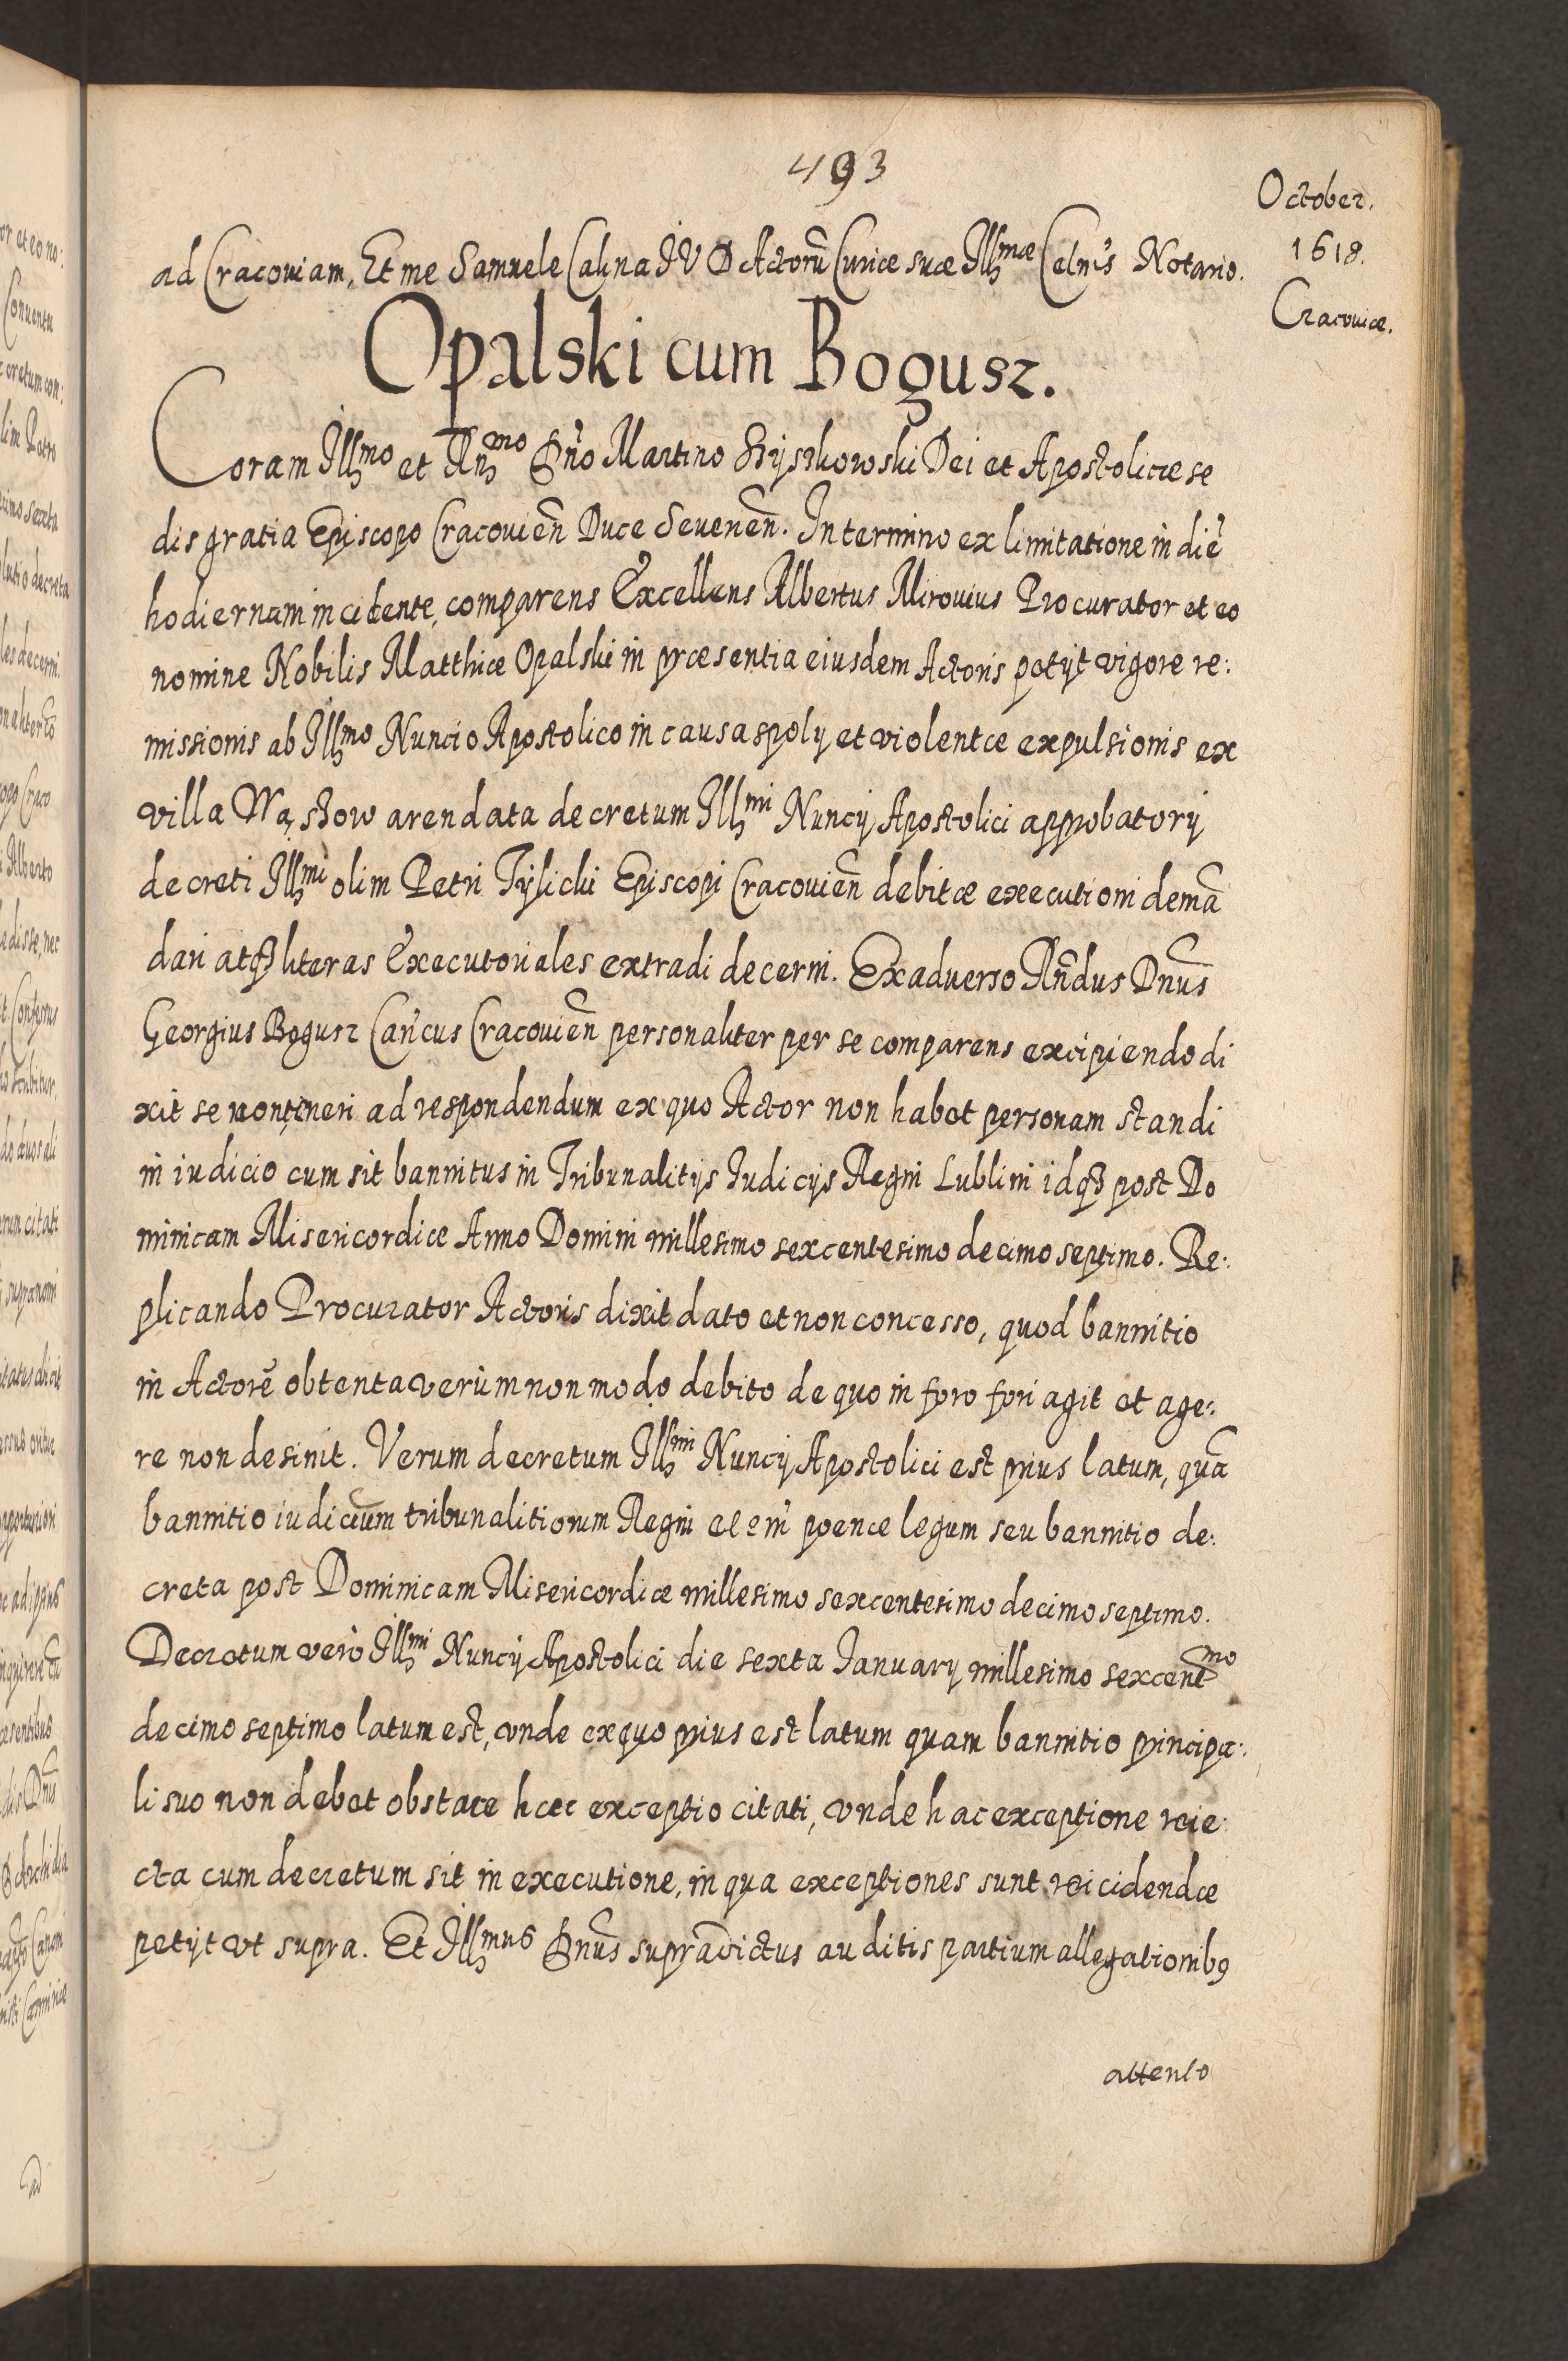 493
October.
1618.
Cracouiæ.
ad Cracouiam, Et me Samuele Calina IVD Actorũ Curiæ suæ Illmæ Celnis Notario.
Opalski cum Bogusz.
Coram Illmo et Rnmo Dno Martino Szyszkowski Dei et Apostolicæ se
dis gratia Episcopo Cracouien̄ Duce Seuerien̄. In termino ex limitatione in diē
hodiernam incidente, comparens Excellens Albertus Mirouius Procurator et eo
nomine Nobilis Matthiæ Opalski in præsentia eiusdem Actoris petijt vigore re:
missionis ab Illmo Nuncio Apostolico in causa spolij et violentæ expulsionis ex
villa Wąstow arendata decretum Illmi Nuncij Apostolici approbatorij
decreti Illmi olim Petri Tylicki Episcopi Cracouien̄ debitæ executioni demā
dari atqȝ literas Executoriales extradi decerni. Ex aduerso Rn̄dus Dnūs
Georgius Bogusz Can̄cus Cracouien̄ personaliter per se comparens excipiendo di
xit se non teneri ad respondendum ex quo Actor non habet personam standi
in iudicio cum sit bannitus in Tribunalitijs Iudicijs Regni Lublini idqȝ post Do
minicam Misericordiæ Anno Domini millesimo sexcentesimo decimo septimo. Re:
plicando Procurator Actoris dixit dato et non concesso, quod bannitio
in Actorē obtenta verùm non modo debito de quo in foro fori agit et age:
re non desinit. Verum decretum Illmi Nuncij Apostolici est prius latum, quā
bannitio iudicium tribunalitiorum Regni eẽm poenæ legum seu bannitio de:
creta post Dominicam Misericordiæ millesimo sexcentesimo decimo septimo.
Decretum verò Illmi Nuncij Apostolici die sexta Ianuarij millesimo sexcentmo
decimo septimo latum est, vnde ex quo prius est latum quam bannitio principa:
li suo non debet obstare hæc exceptio citati, vnde hac exceptione reie
cta cum decretum sit in executione, in qua exceptiones sunt reicidendæ
petijt vt supra. Et Illmus Dnūs supradictus auditis partium allegationibꝯ
attento